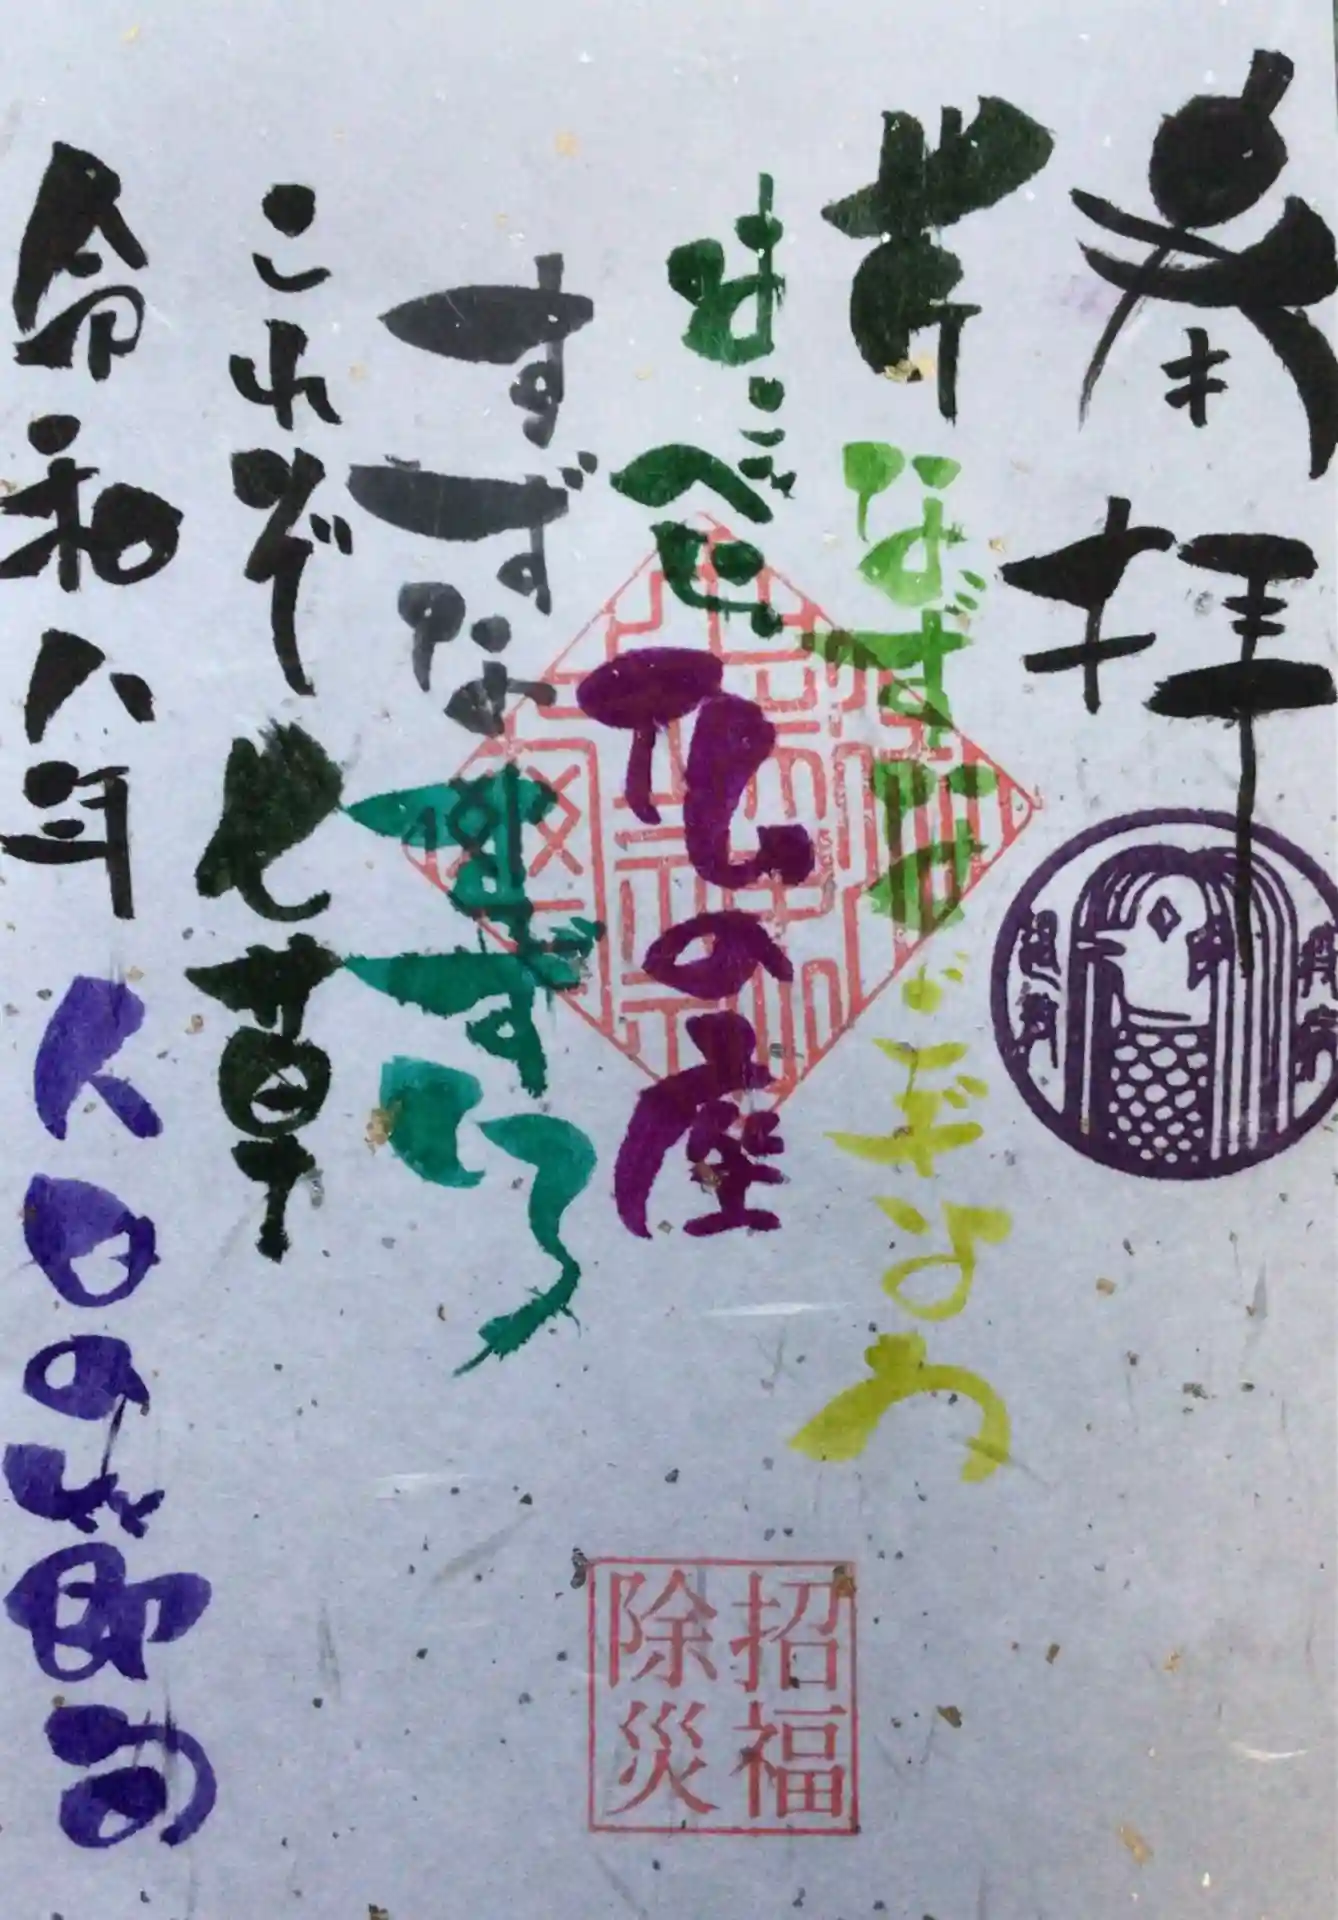 奉拝
芹 なずな ごぎょう
はこべら 仏の座
すずな すずしろ
これぞ 七草
令和八年 人日の節句
招福
除災